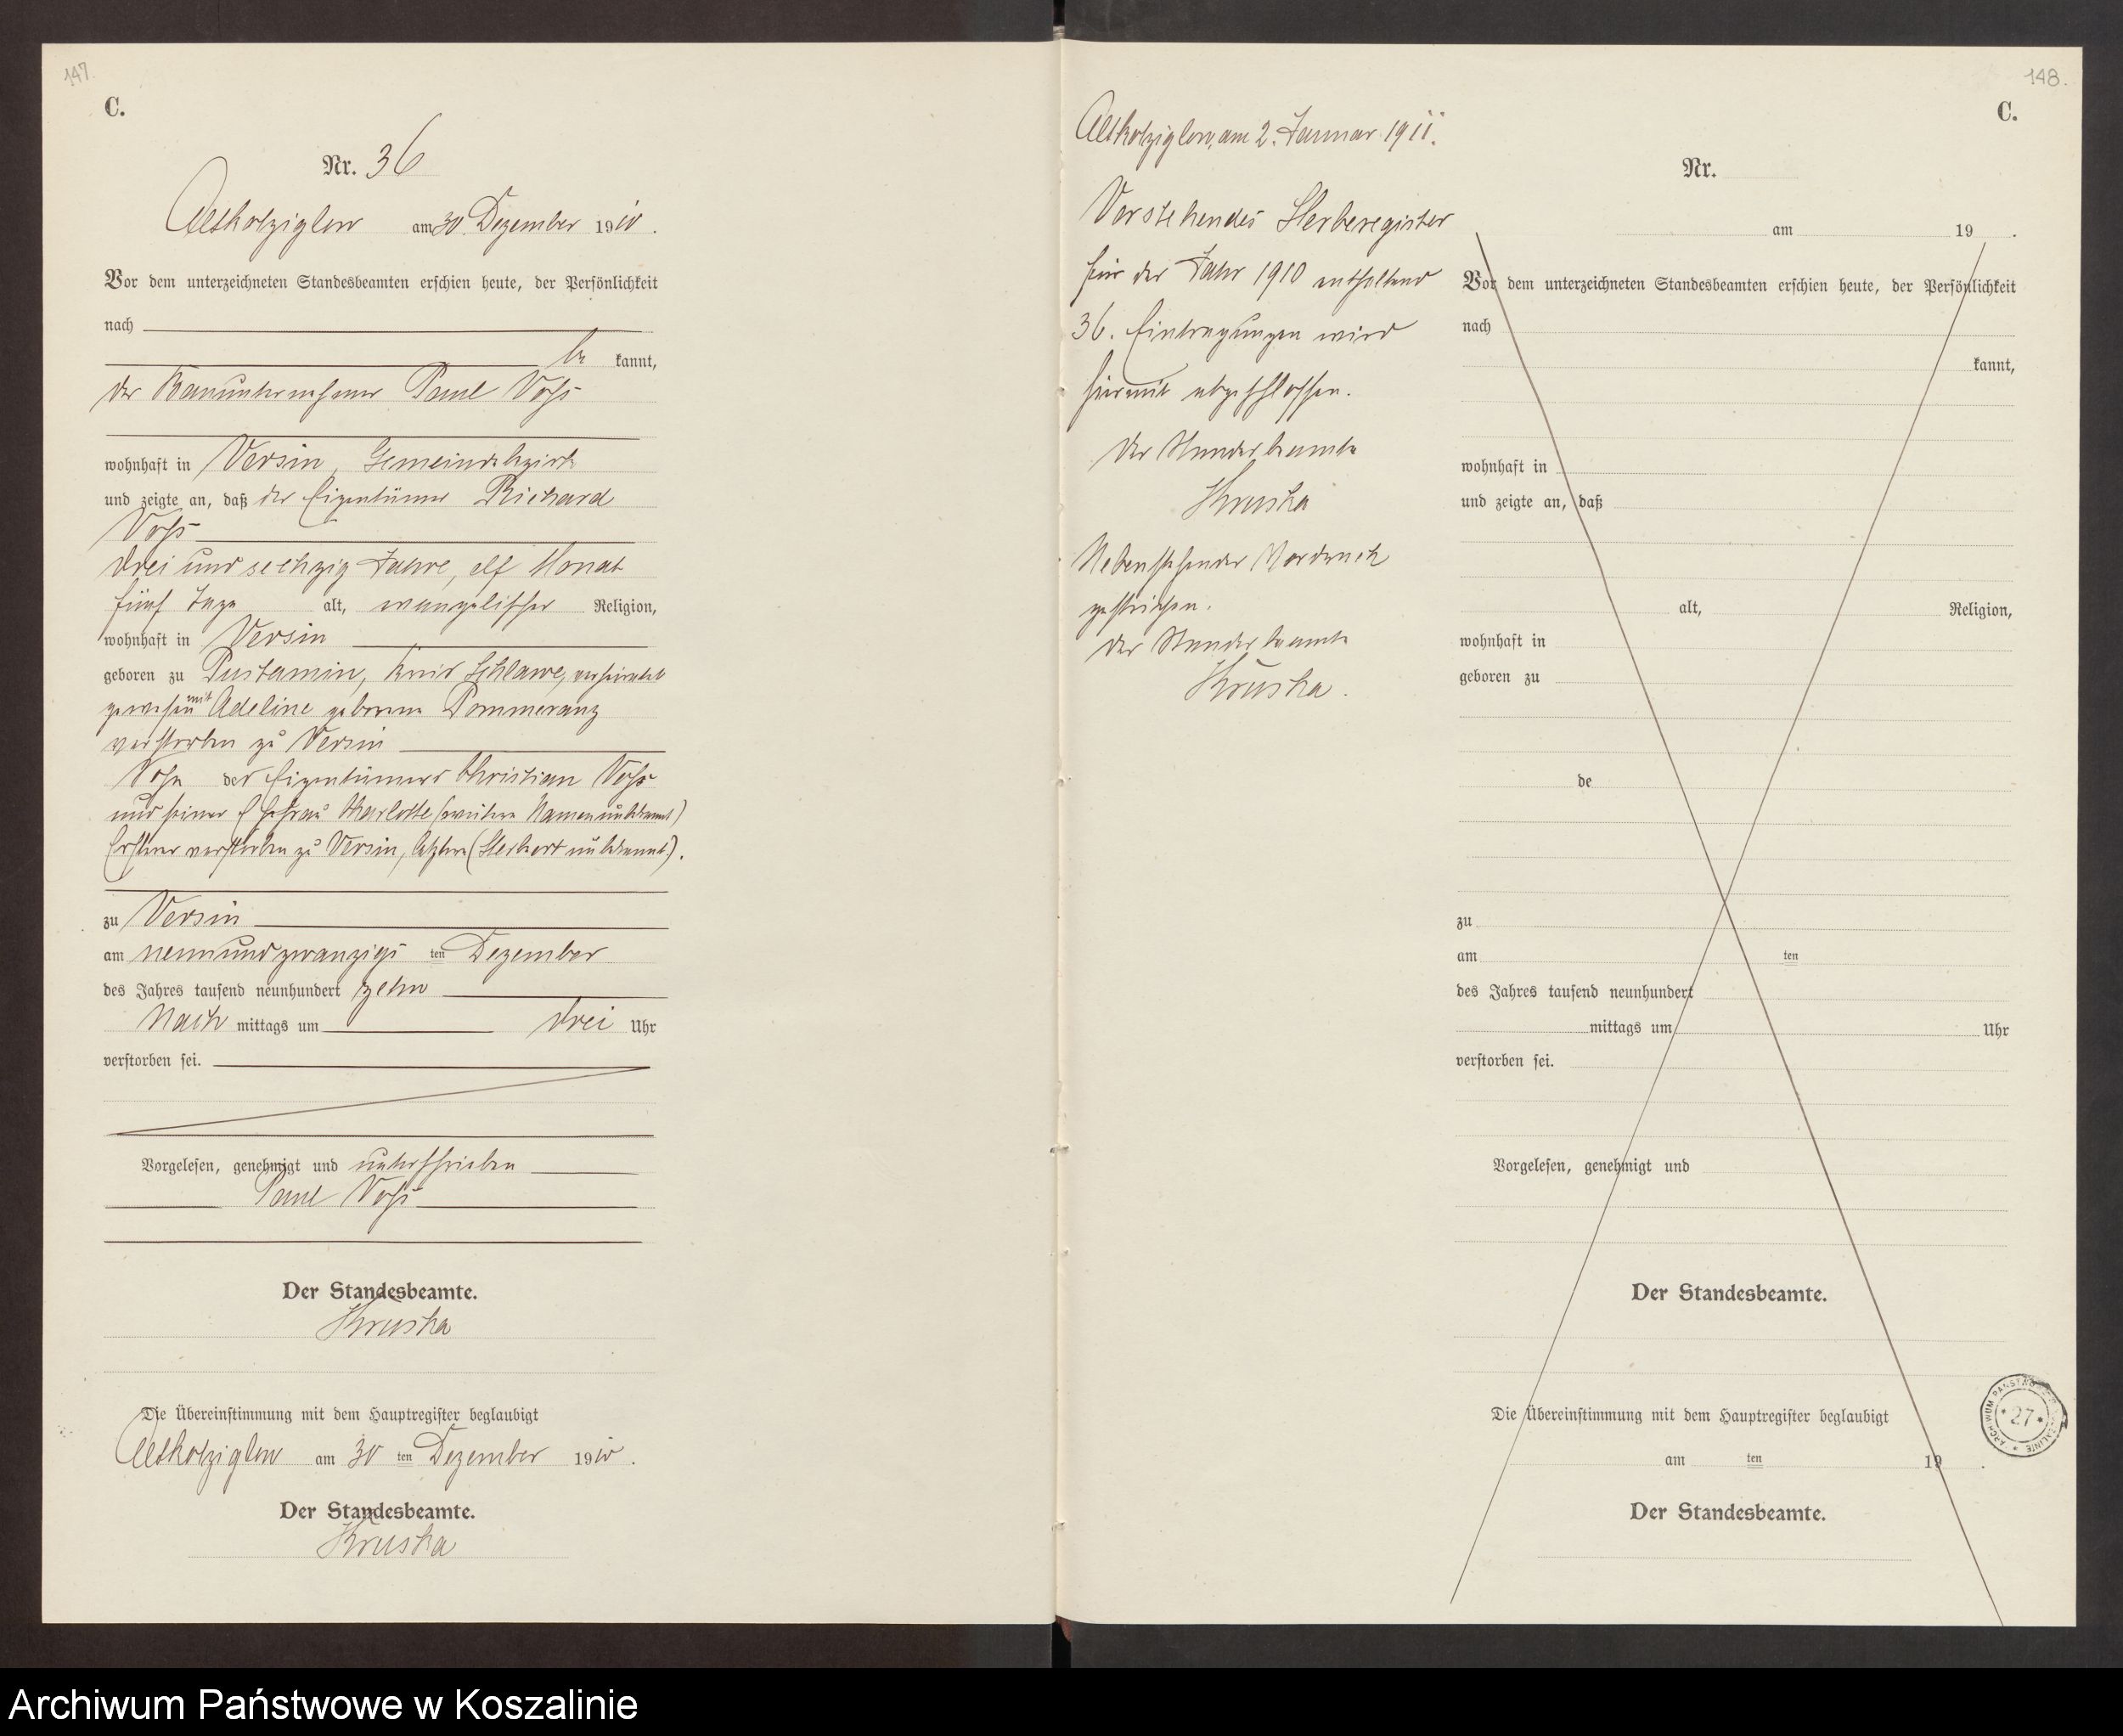 147.
C.
Nr. 36
Altkolziglow am 30. Dezember 1910.
Vor dem unterzeichneten Standesbeamten erschien heute, der Persönlichkeit
nach
be kannt,
der Bauunternehmer Paul Voss
wohnhaft in Versin, Gemeindebezirk
und zeigte an, daß der Eigentümer Richard
Voss
drei und sechzig Jahre, elf Monat
fünf Tage alt, evangelischer Religion,
wohnhaft in Versin
geboren zu Pustamin, Kreis Schlawe, verheiratet
gewesen mit Adeline geborene Pommeranz
verstorben zu Versin
Sohn des Eigentümers Christian Voss
und seiner Ehefrau Charlotte (weitere Namen unbekannt)
Ersterer verstorben zu Versin, letztere (Sterbeort unbekannt).
zu Versin
am neunundzwanzigs ten Dezember
des Jahres tausend neunhundert zehn
Nach mittags um drei Uhr
verstorben sei.
Vorgelesen, genehmigt und unterschrieben
Paul Voss
Der Standesbeamte.
Kruska
Die Übereinstimmung mit dem Hauptregister beglaubigt
Altkolziglow am 30 ten Dezember 1910.
Der Standesbeamte.
Kruska
Altkolziglow, am 2. Januar 1911.
Vorstehendes Sterberegister
für das Jahr 1910 enthaltend
36. Eintragungen wird
hiermit abgeschlossen.
Der Standesbeamte
Kruska
Nebenstehender Vordruck
gestrichen.
Der Standesbeamte
Kruska.
148.
C.
Nr.
am 19 .
Vor dem unterzeichneten Standesbeamten erschien heute, der Persönlichkeit
nach
kannt,
wohnhaft in
und zeigte an, daß
alt, Religion,
wohnhaft in
geboren zu
de
zu
am ten
des Jahres tausend neunhundert
mittags um Uhr
verstorben sei.
Vorgelesen, genehmigt und
Der Standesbeamte.
Die Übereinstimmung mit dem Hauptregister beglaubigt
am ten 19 .
Der Standesbeamte.
ARCHIWUM
*27*
Archiwum Państwowe w Koszalinie